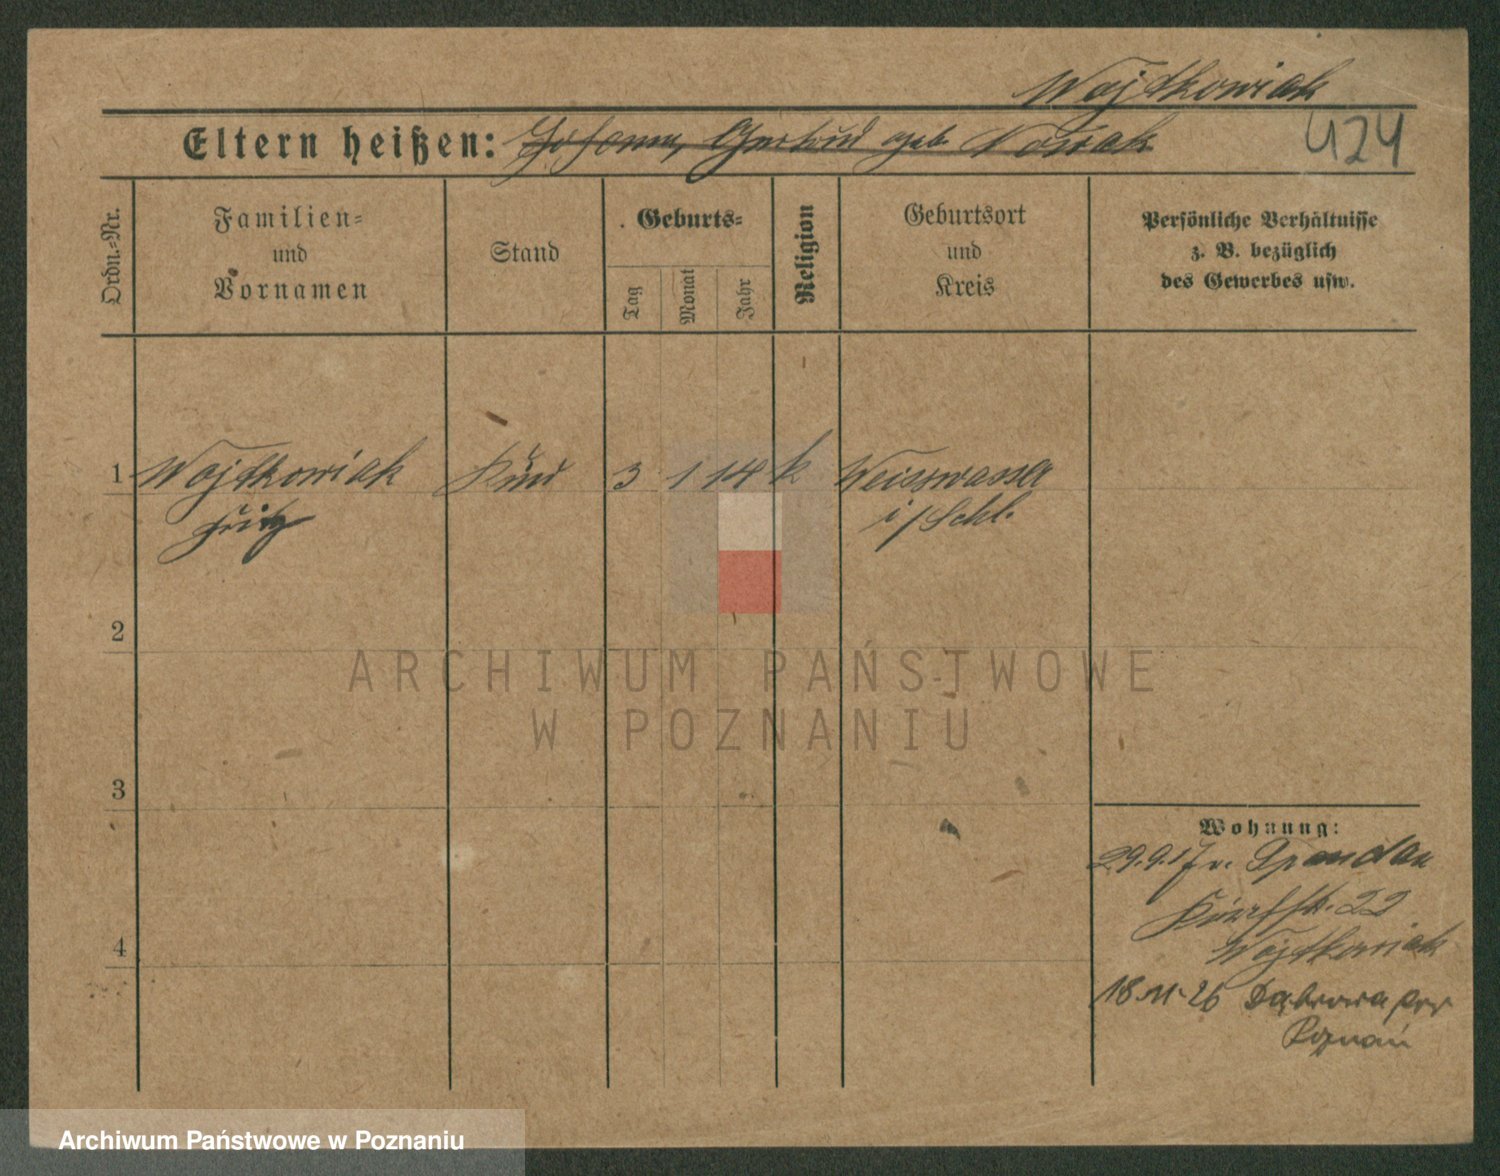 Wojtkowiak
Eltern heißen: Johann, Gertrud geb. Nowak
424
Ordn.=Nr.
Familien=
und
Vornamen
Stand
Geburts=
Tag
Monat
Jahr
Religion
Geburtsort
und
Kreis
Persönliche Verhältnisse
z. B. bezüglich
des Gewerbes usw.
1 Wojtkowiak Kind 3 1 14 k Weisswasser
Fritz i/Schl.
2
ARCHIWUM PAŃSTWOWE
W POZNANIU
3
Wohnung:
29.9.17 v. Spandau
22
Wojtkowiak
4
18.11.26 Dąbrowa
Poznań
Archiwum Państwowe w Poznaniu